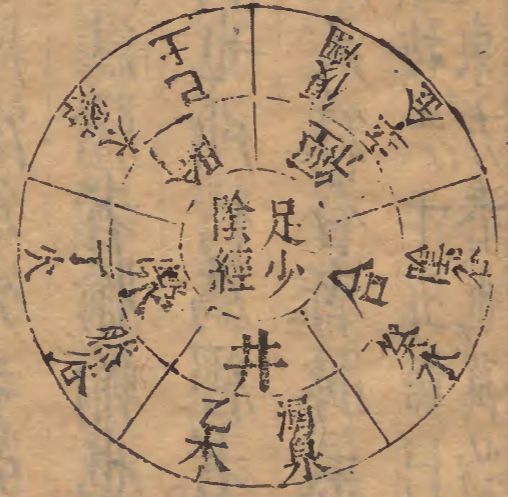 足少
陰經
井
湧泉
乙木
滎
然谷
丁火
腧
太谿
己土
經
復溜
辛金
合
陰谷
癸水